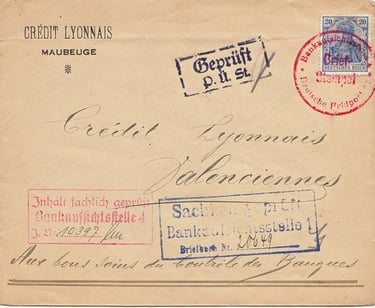 CRÉDIT LYONNAIS
MAUBEUGE
Geprüft
P. Ü. St.
20 20
DEUTSCHES REICH
Bankaufsichtsstelle
Brief-
Stempel
Deutsche Feldpost
Crédit Lyonnais
Valenciennes
Inhalt fachlich geprüft
Bankaufsichtsstelle 4
J. Nr. 10397
Sachlich geprüft
Bankaufsichtsstelle 1
Briefbuch Nr. 20649
Aux bons soins du Contrôle des Banques